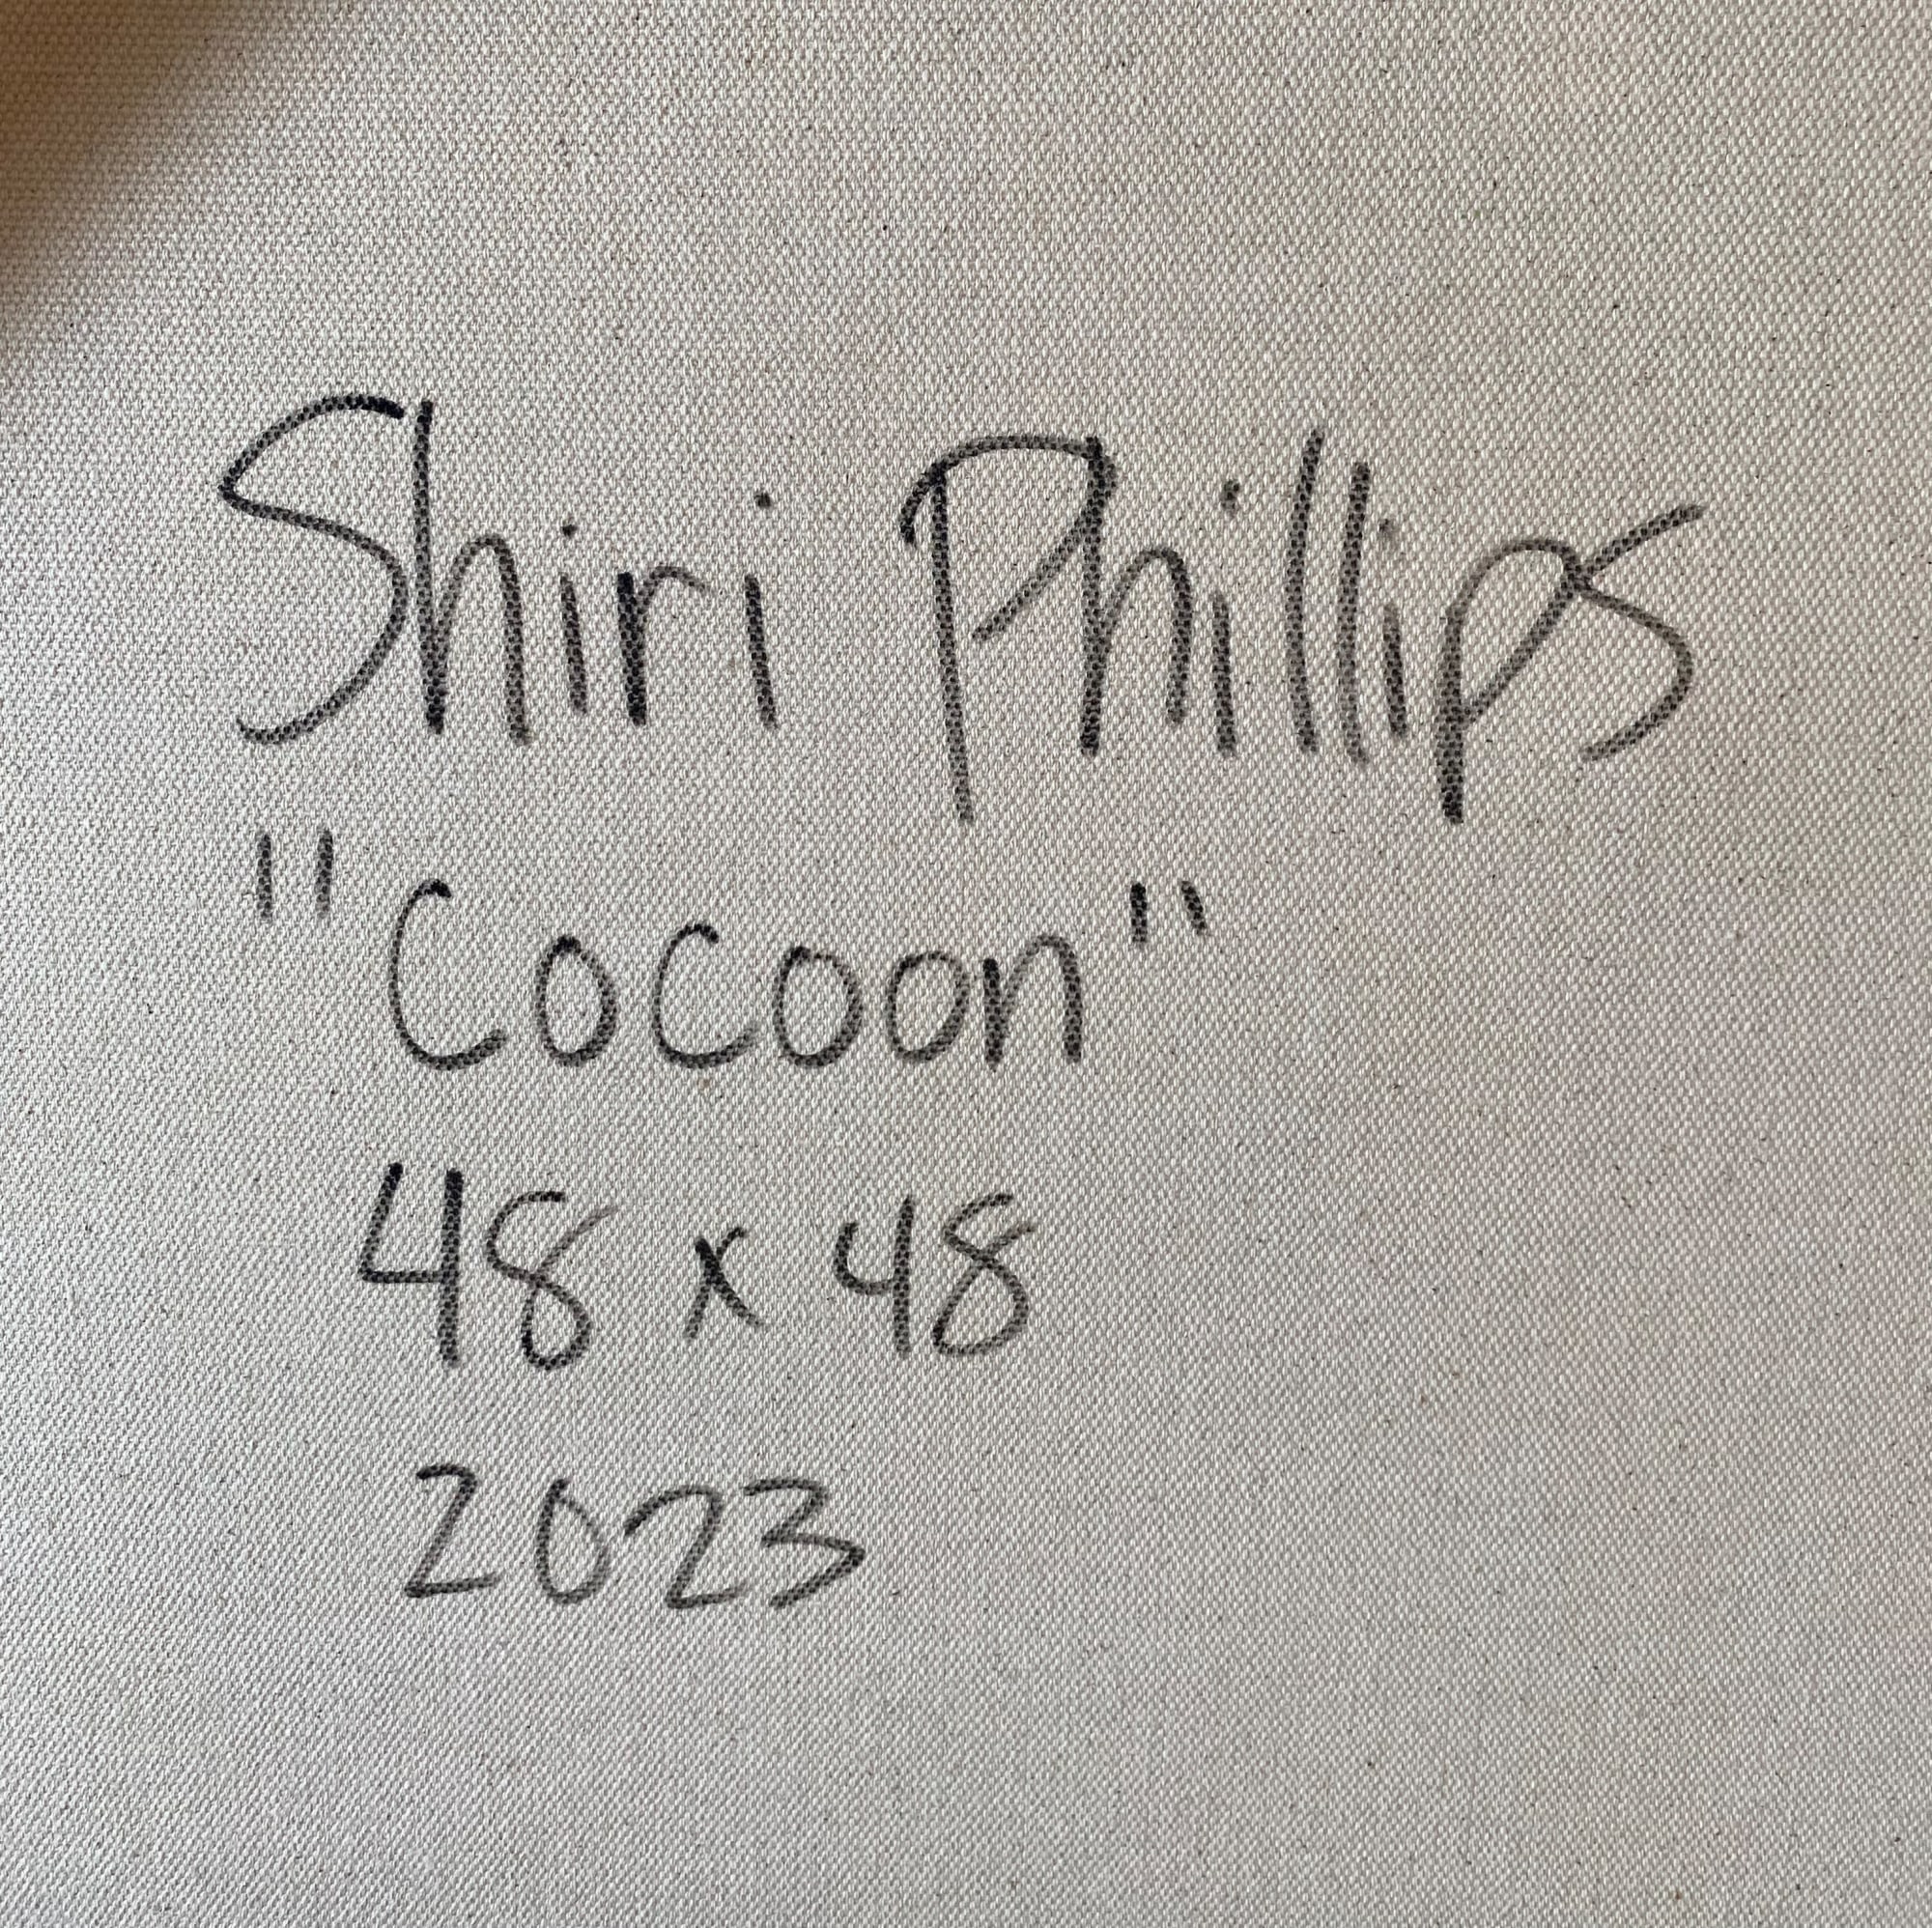 Shiri Phillips
"Cocoon"
48 x 48
2023